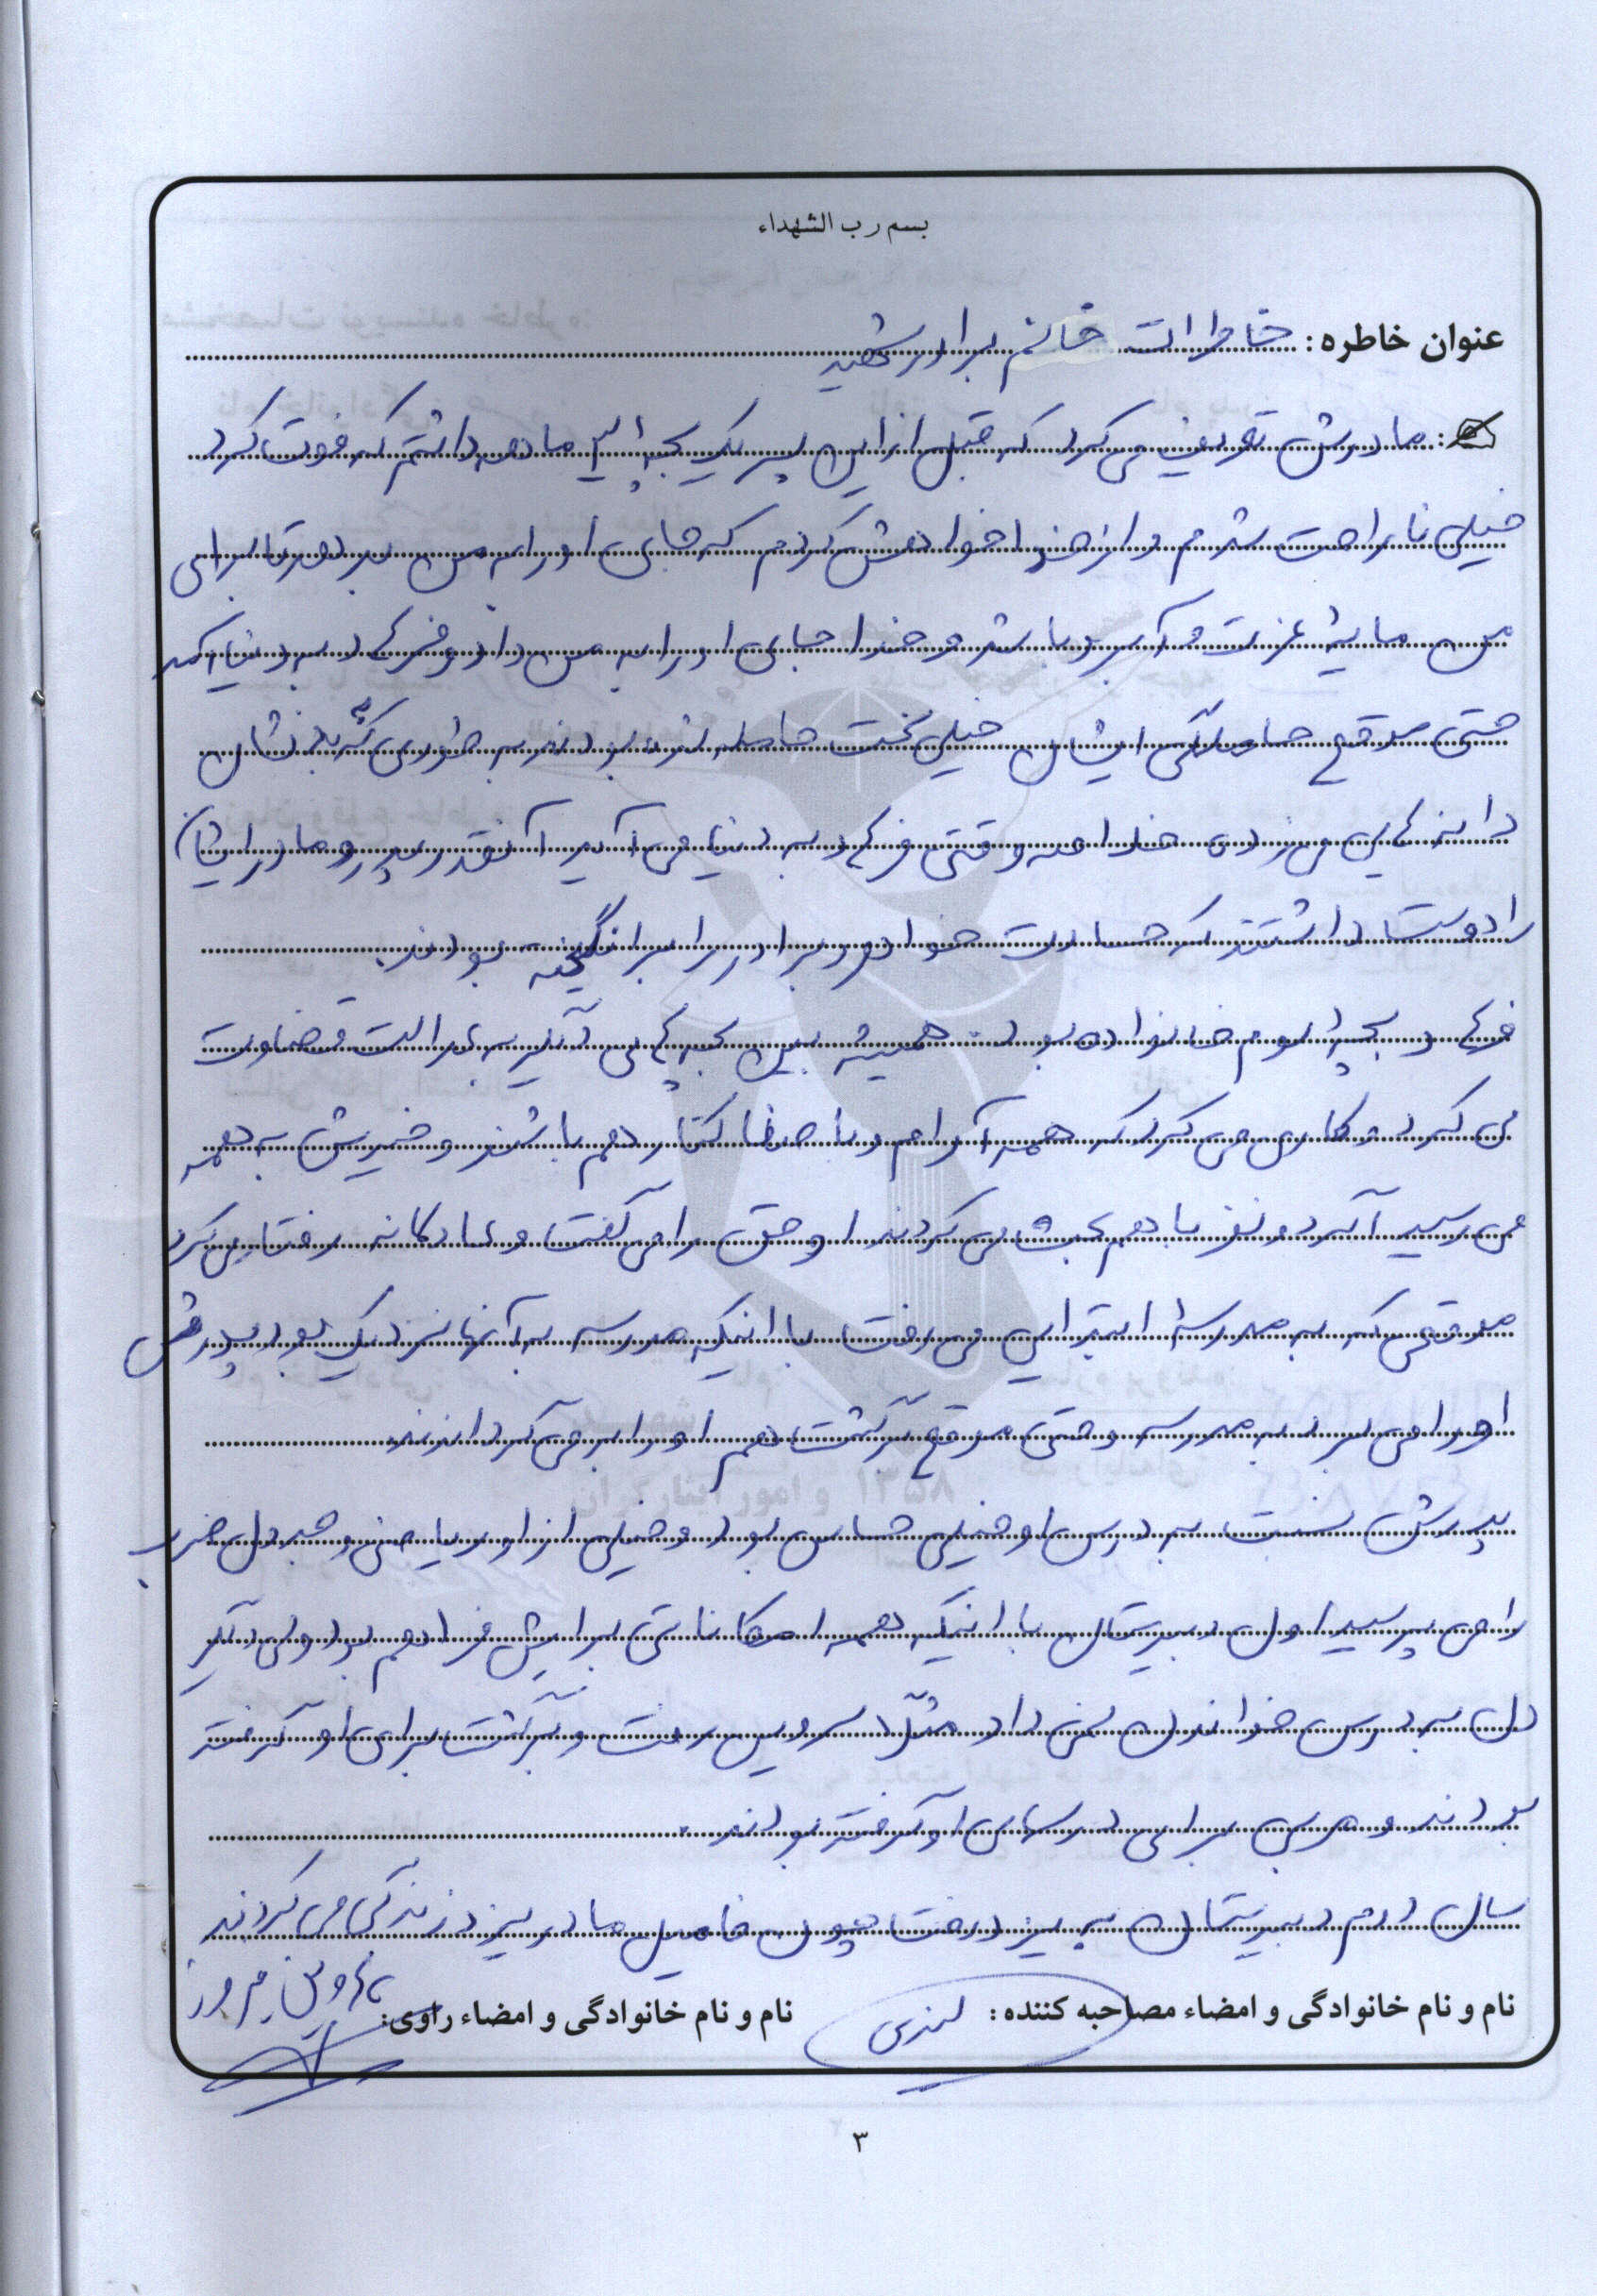 بسم رب الشهداء
عنوان خاطره: خاطرات خانم برادر شهید
مادرش تعریف می کرد که قبل از این پسر یک بچه ماهه داشتم که فوت کرد
خیلی ناراحت شدم و از خدا خواهش کردم که جای او را به من بدهد تا برای
من مایهٔ عزت و آبرو باشد و خدا جای او را به من داد و فرهاد به دنیا آمد
حتی موقع حاملگی ایشان خیلی سخت حامله شده بودند به طوری که بدنشان
دانه هایی می زده خلاصه وقتی فرهاد به دنیا می آید آنقدر پدر و مادر ایشان
را دوست داشتند که حسادت خواهر و برادر را برانگیخته بودند.
فرهاد بچه سوم خانواده بود. همیشه بین بچه های دیگر به عدالت قضاوت
می کرد و کاری می کرد که همه آرام و با صفا کنار هم باشند و خیرش به همه
می رسید اگر دو نفر با هم بحث می کردند او حق را می گفت و عادلانه رفتار می کرد
موقعی که به مدرسهٔ ابتدایی می رفت با اینکه مدرسه به آنها نزدیک بود پدرش
او را می برد به مدرسه و حتی موقع برگشت هم او را برمی گرداندند
پدرش نسبت به درس او خیلی حساس بود و خیلی از او ریاضی و جدول ضرب
را می پرسید اول دبیرستان با اینکه همه امکاناتی برایش فراهم بود ولی دیگر
دل به درس خواندن نمی داد مثلاً سرویس رفت و برگشت برای او گرفته
بودند و مربی برای درسهای او گرفته بودند.
سال دوم دبیرستان به یزد رفت چون فامیل ما در یزد زندگی می کردند
نام و نام خانوادگی و امضاء مصاحبه کننده:
نام و نام خانوادگی و امضاء راوی:
۳